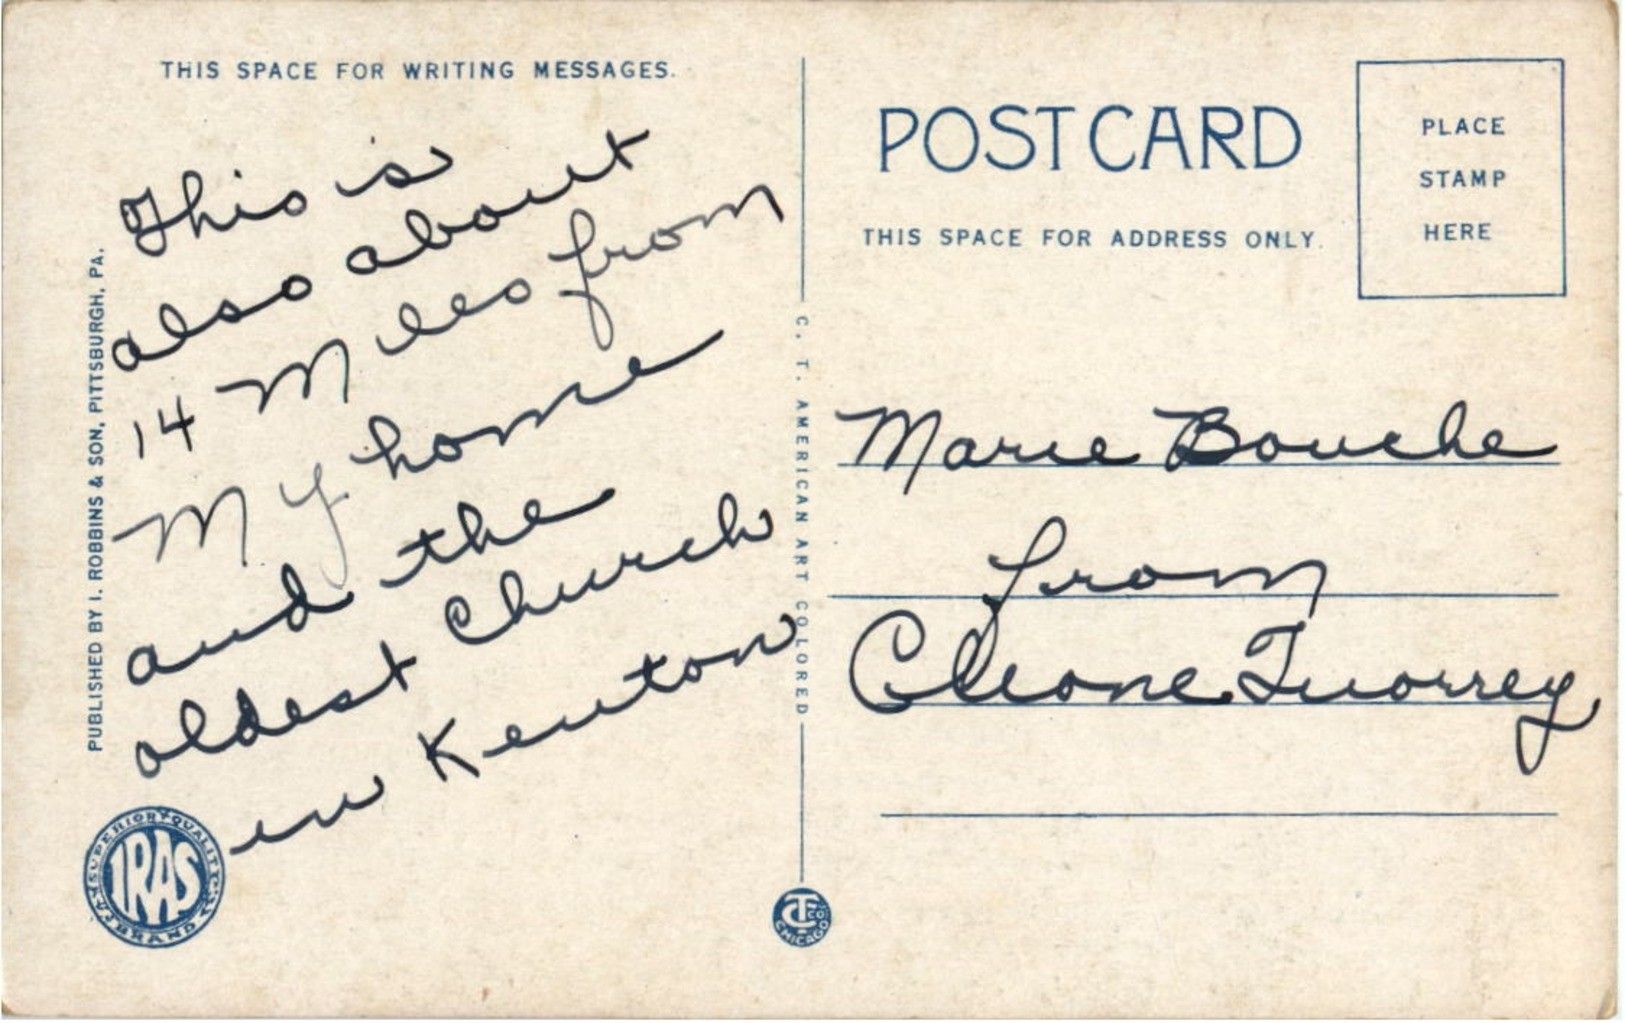 THIS SPACE FOR WRITING MESSAGES.
This is
also about
14 Miles from
My home
and the
oldest Church
in Kenton
PUBLISHED BY I. ROBBINS & SON, PITTSBURGH, PA.
SUPERIOR QUALITY
IRAS
BRAND
C. T. AMERICAN ART COLORED
CT CO. CHICAGO
POST CARD
THIS SPACE FOR ADDRESS ONLY.
PLACE
STAMP
HERE
Marie Bouche
from
Cleone